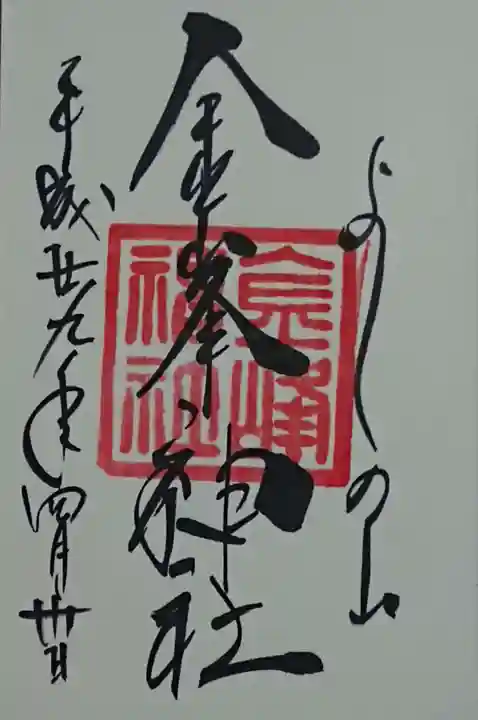 よしの山
金峯神社
金峰
神社
平成廿九年四月卅日